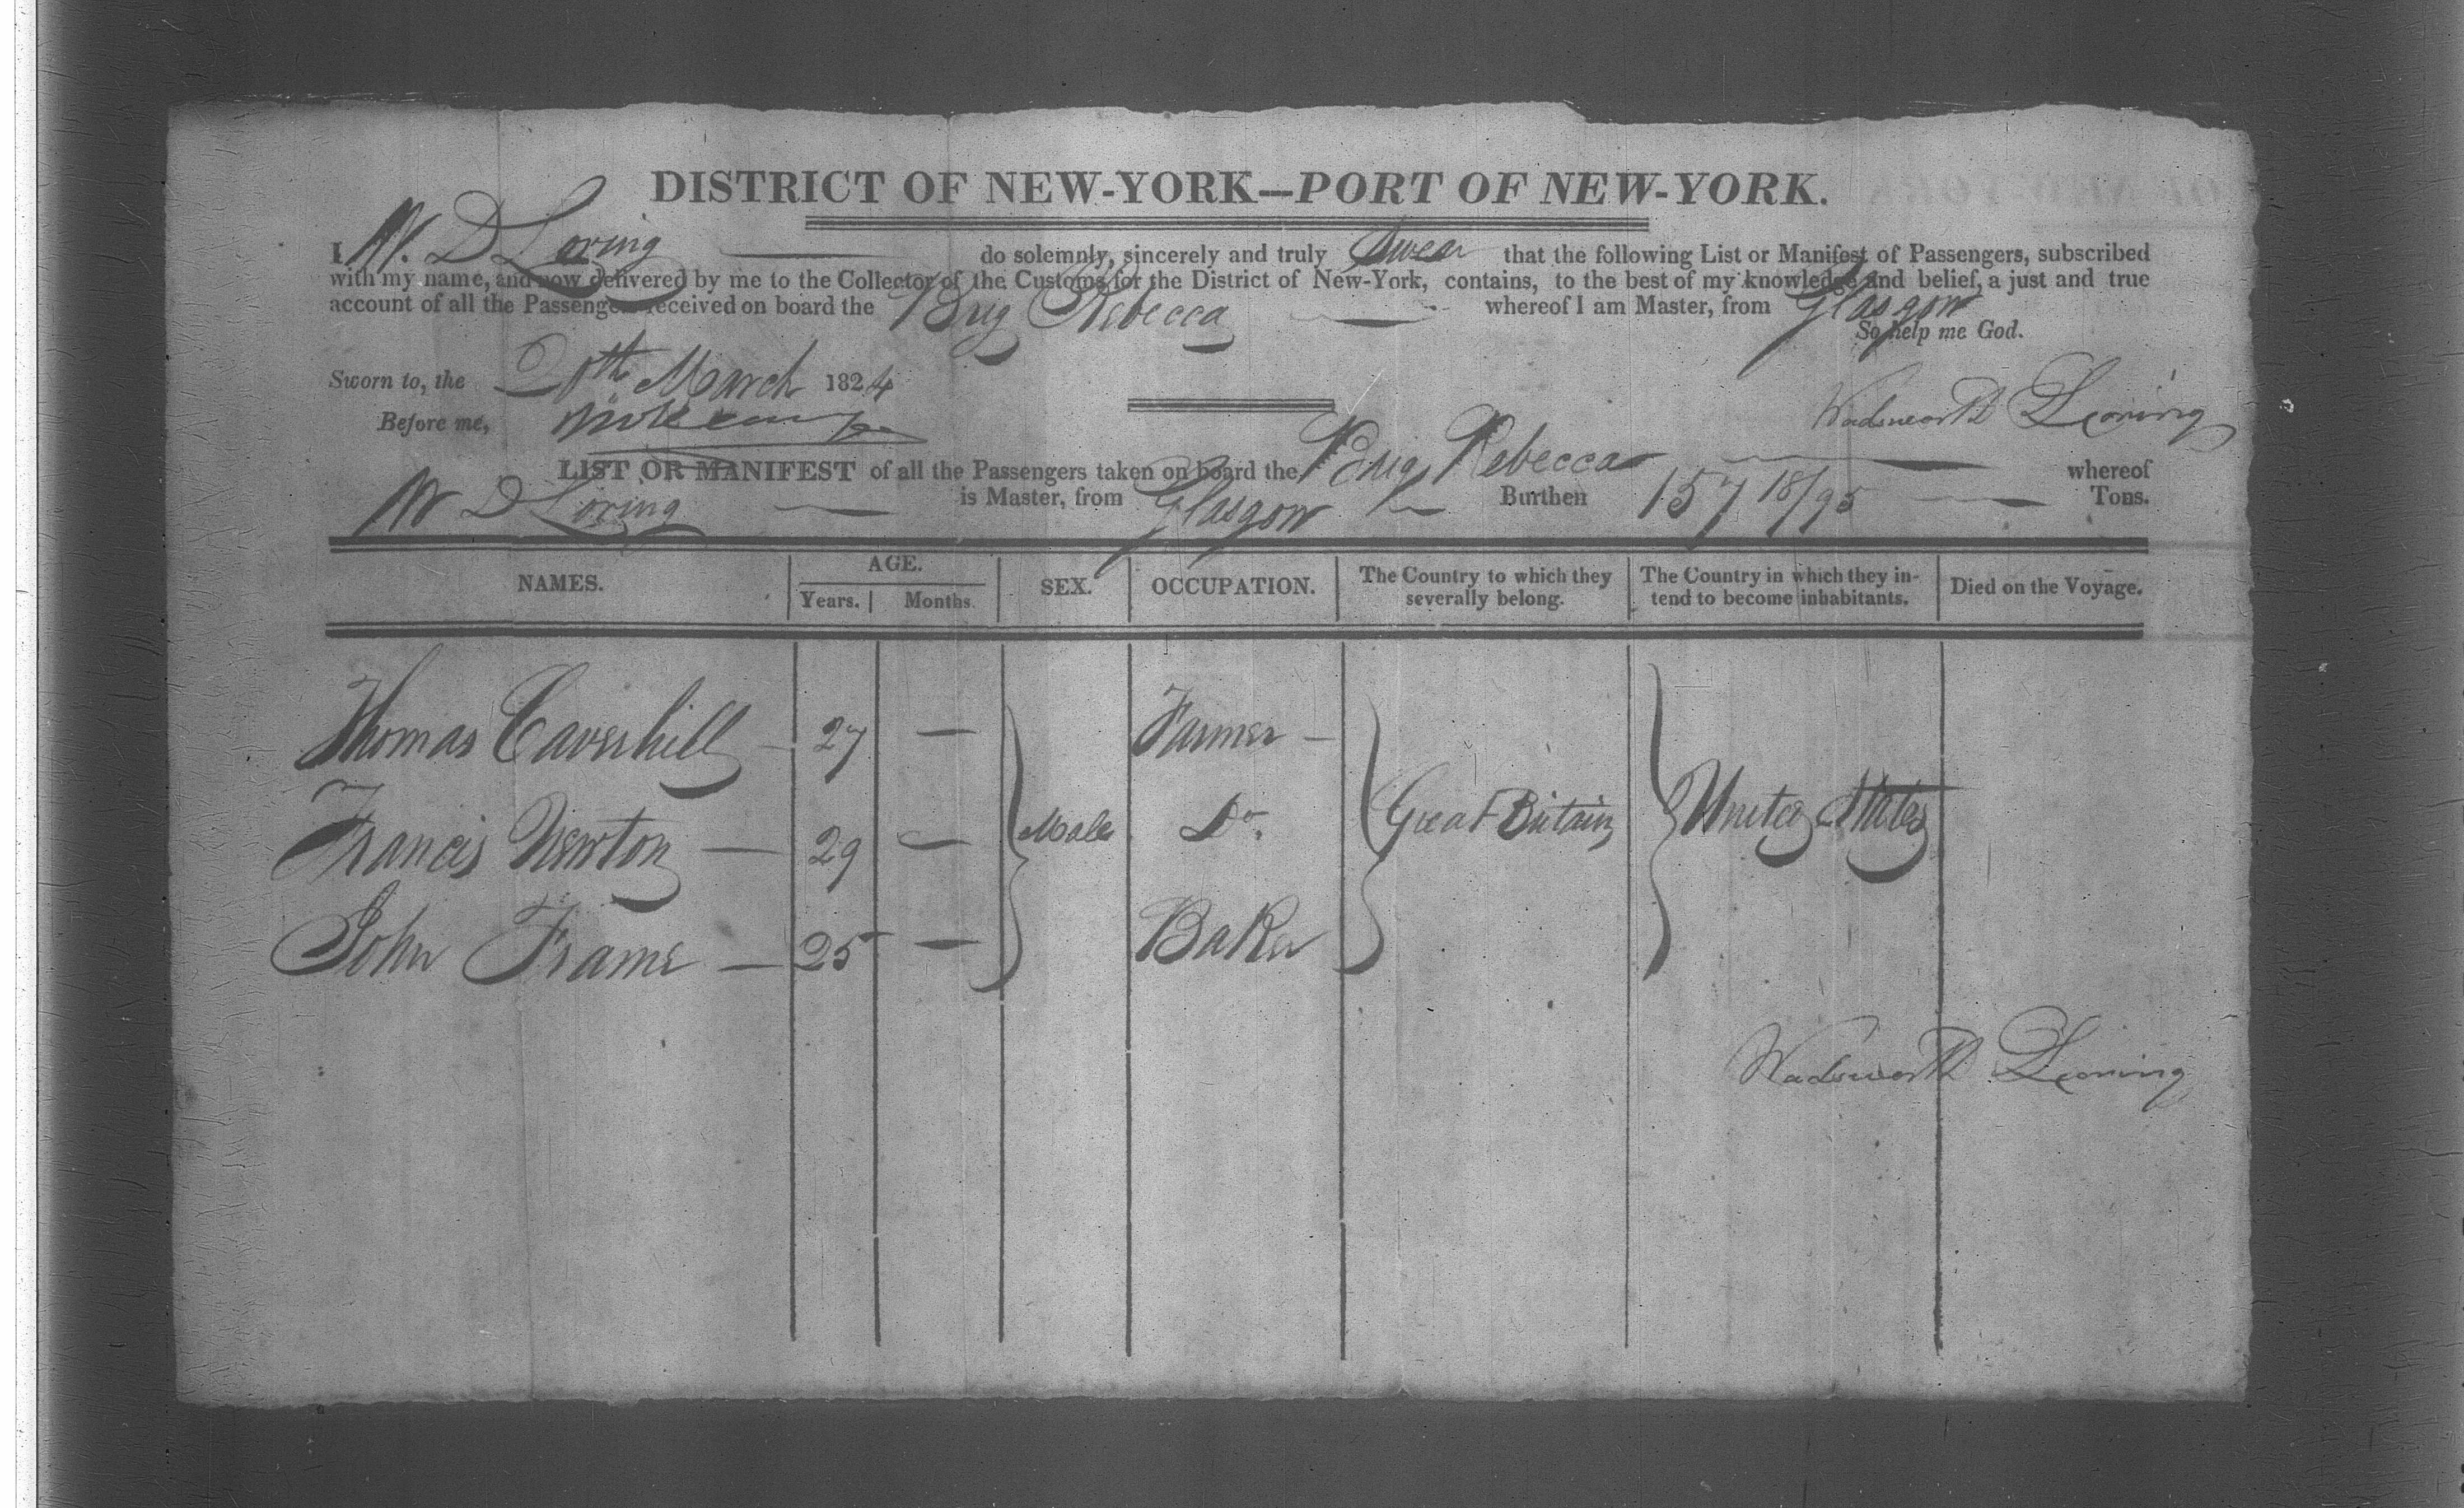 DISTRICT OF NEW-YORK—PORT OF NEW-YORK.
I W. D Loring do solemnly, sincerely and truly Swear that the following List or Manifest of Passengers, subscribed
with my name, and now delivered by me to the Collector of the Customs for the District of New-York, contains, to the best of my knowledge and belief, a just and true
account of all the Passengers received on board the Brig Rebecca whereof I am Master, from Glasgow
So help me God.
Sworn to, the 20th March 1824
Before me,
Wadsworth Loring
LIST OR MANIFEST of all the Passengers taken on board the Brig Rebecca whereof
W D Loring is Master, from Glasgow Burthen 157 18/95 Tons.
NAMES. AGE. Years. Months. SEX. OCCUPATION. The Country to which they severally belong. The Country in which they intend to become inhabitants. Died on the Voyage.
Thomas Caverhill — 27 — Farmer —
Francis Newton — 29 — Male Do. Great Britain United States
John Frame — 25 — Baker
Wadsworth Loring